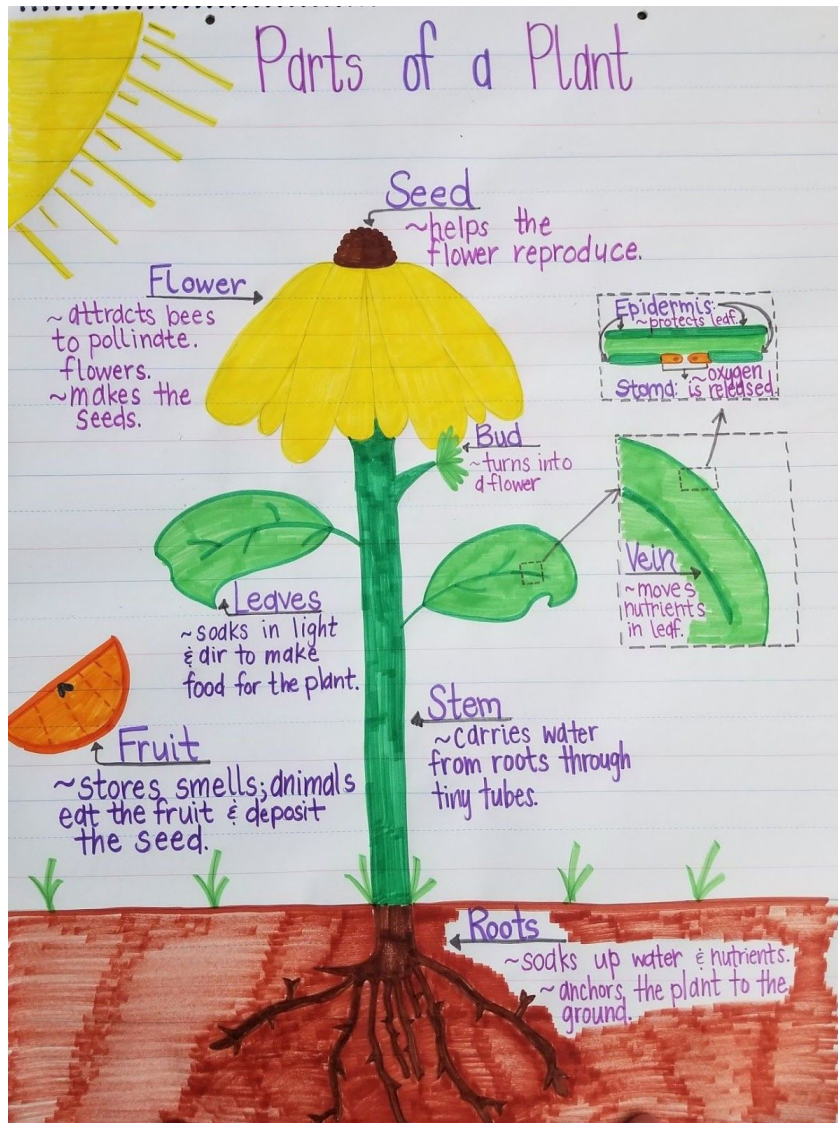 Parts of a Plant
Seed
~helps the
flower reproduce.
Flower
~attracts bees
to pollinate.
flowers.
~makes the
seeds.
Epidermis:
~protects leaf.
Stoma: ~oxygen
is released.
Bud
~turns into
a flower
Vein
~moves
nutrients
in leaf.
Leaves
~soaks in light
& air to make
food for the plant.
Stem
~carries water
from roots through
tiny tubes.
Fruit
~stores smells; animals
eat the fruit & deposit
the seed.
Roots
~soaks up water & nutrients.
~anchors the plant to the
ground.